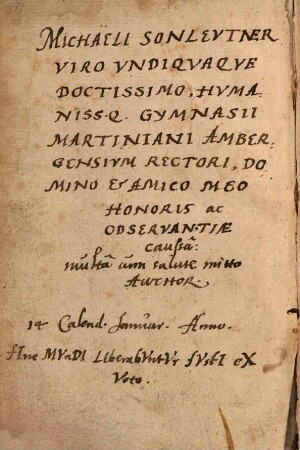 MICHAËLI SONLEVTNER
VIRO VNDIQVAQVE
DOCTISSIMO, HVMA-
NISS.Q. GYMNASII
MARTINIANI AMBER-
GENSIVM RECTORI, DO
MINO & AMICO MEO
HONORIS ac
OBSERVANTIÆ
caussâ:
multâ cum salute mitto
AVTHOR.
14 Calend. Januar. Anno.
fIne MVnDI LIberabVntVr IVstI eX
Voto.